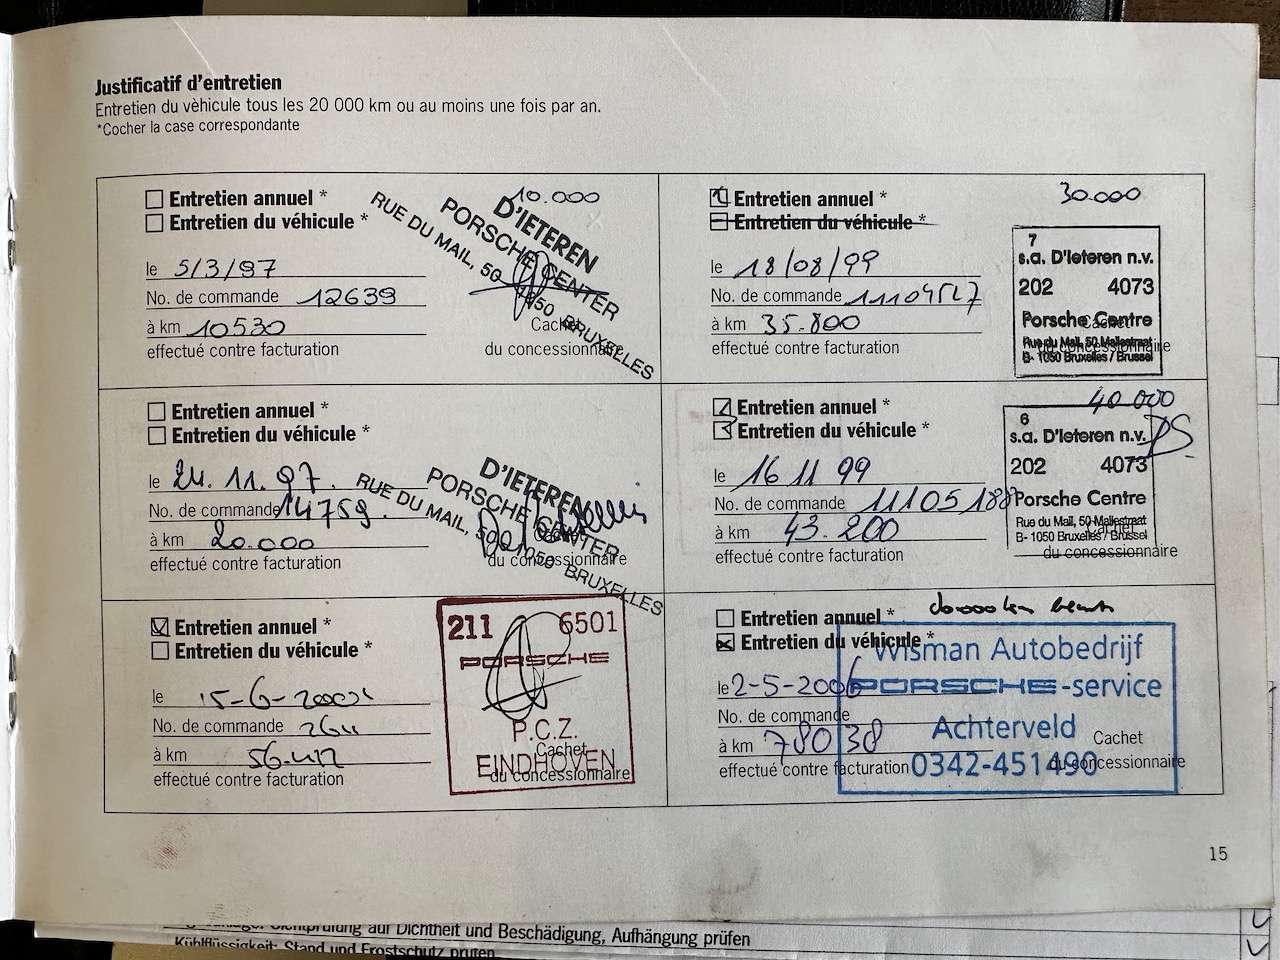 Justificatif d'entretien
Entretien du vèhicule tous les 20 000 km ou au moins une fois par an.
*Cocher la case correspondante
Entretien annuel *
10.000
Entretien du véhicule *
D'IETEREN
PORSCHE CENTER
RUE DU MAIL, 50 1050 BRUXELLES
le 5/3/97
No. de commande 12639
à km 10530
Cachet
effectué contre facturation
du concessionnaire
Entretien annuel *
30.000
Entretien du véhicule *
7
s.a. D'Ieteren n.v.
202 4073
Porsche Centre
Rue du Mail, 50 Maliestraat
B- 1050 Bruxelles / Brussel
le 18/08/99
No. de commande 11104527
à km 35.800
Cachet
effectué contre facturation
du concessionnaire
Entretien annuel *
Entretien du véhicule *
D'IETEREN
PORSCHE CENTER
RUE DU MAIL, 50 1050 BRUXELLES
le 24.11.97.
No. de commande 14759.
à km 20.000
Cachet
effectué contre facturation
du concessionnaire
Entretien annuel *
40.000
Entretien du véhicule *
6
s.a. D'Ieteren n.v.
202 4073
Porsche Centre
Rue du Mail, 50 Maliestraat
B- 1050 Bruxelles / Brussel
le 16 11 99
No. de commande 11105188
à km 43.200
Cachet
effectué contre facturation
du concessionnaire
Entretien annuel *
Entretien du véhicule *
211 6501
PORSCHE
P.C.Z.
EINDHOVEN
le 15-6-2002
No. de commande
à km 56.412
Cachet
effectué contre facturation
du concessionnaire
Entretien annuel *
Entretien du véhicule *
Wisman Autobedrijf
PORSCHE-service
Achterveld
0342-451490
le 2-5-2006
No. de commande
à km 78038
Cachet
effectué contre facturation
du concessionnaire
15
auf Dichtheit und Beschädigung, Aufhängung prüfen
Kühlflüssigkeit: Stand und Frostschutz prüfen